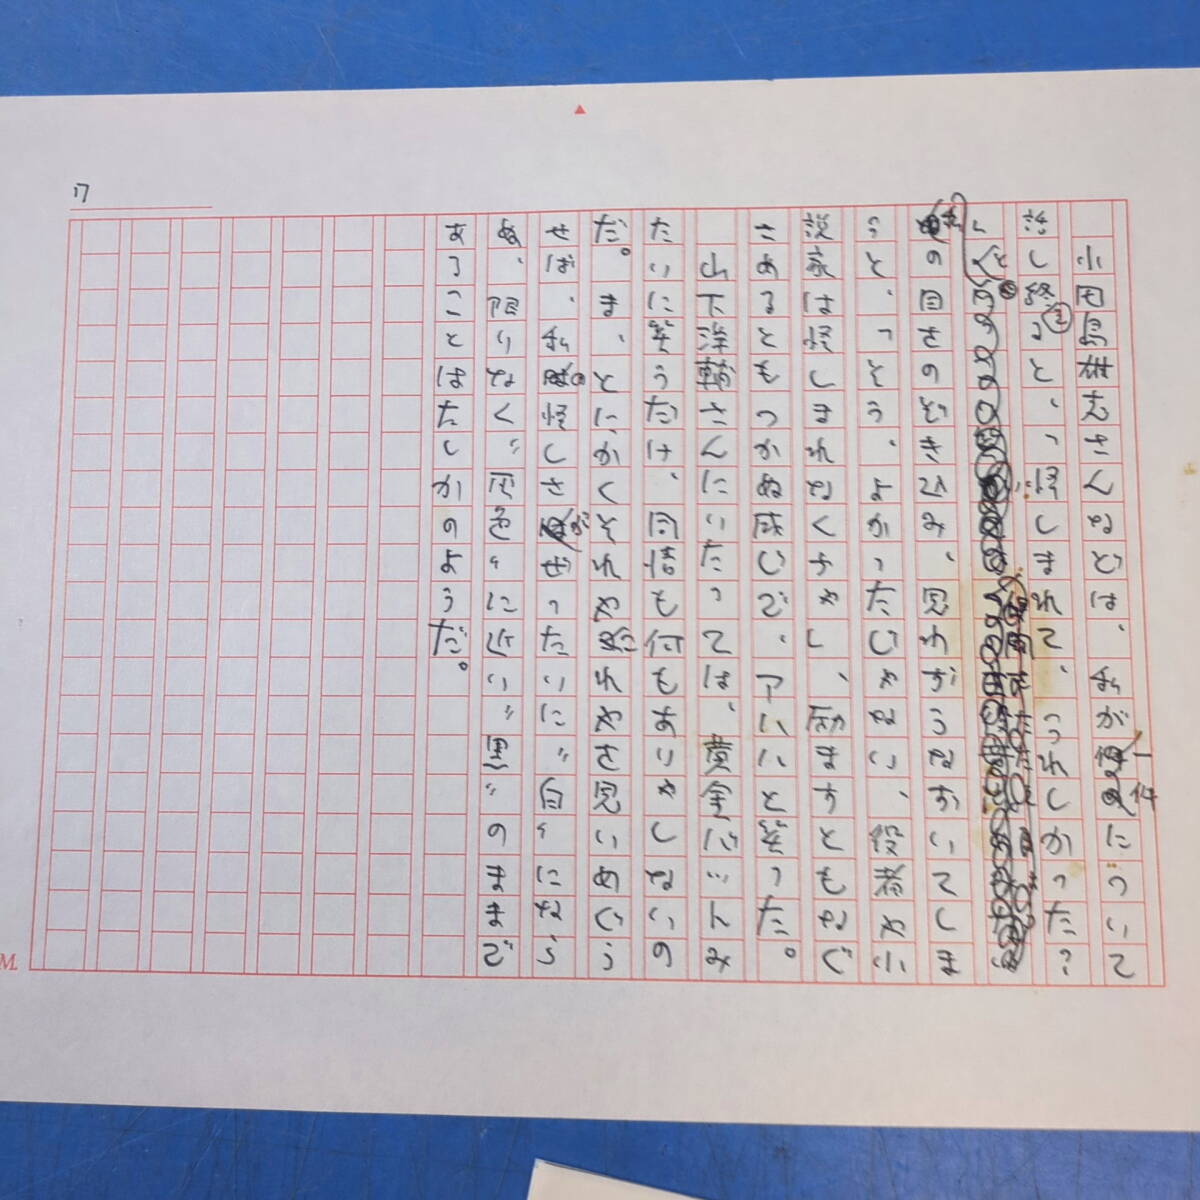 17
小田島雄志さんなどは、私が一件について
話し終ると、「怪しまれて、うれしかった?
」と
の目をのぞき込み、思わずうなずいてしま
うと、「そう、よかったじゃない、役者や小
説家は怪しまれなくちゃ」、励ますともなぐ
さめるともつかぬ感じで、アハハと笑った。
山下洋輔さんにいたっては、黄金バットみ
たいに笑うだけ、同情も何もありゃしないの
だ。ま、とにかくそれやこれやを思いめぐら
せば、私の怪しさがぜったいに〝白〟になら
ぬ、限りなく〝灰色〟に近い〝黒〟のままで
あることはたしかのようだ。
M.